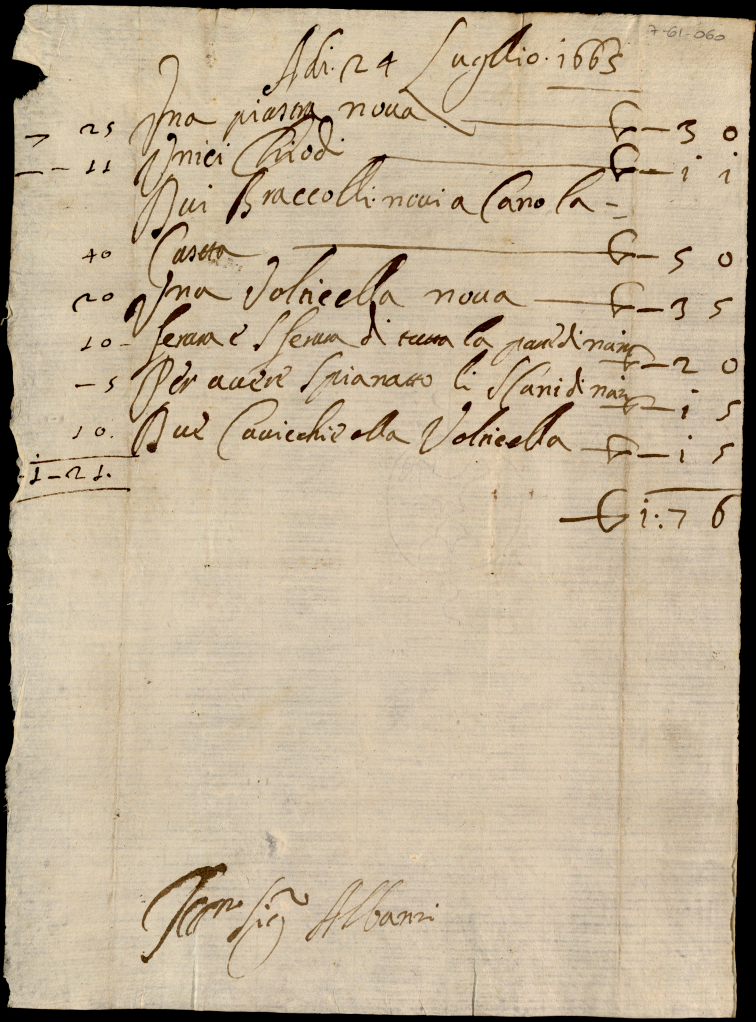 7-61-060
Adi. 24 Luglio. 1665
25 Una piastra noua — 3 0
— - 11 Unici Chiodi — i i
Dui Braccolli noui a Cano la -
40 Casetta — 5 0
20 Una Volticella noua — 3 5
10 - ferara e sferara di tutta la — 2 0
- 5 Per auere spianatto li — i 5
10. Due Cauicchie alla Volticella — i 5
1-21.
— i:7 6
Sig.r Albani